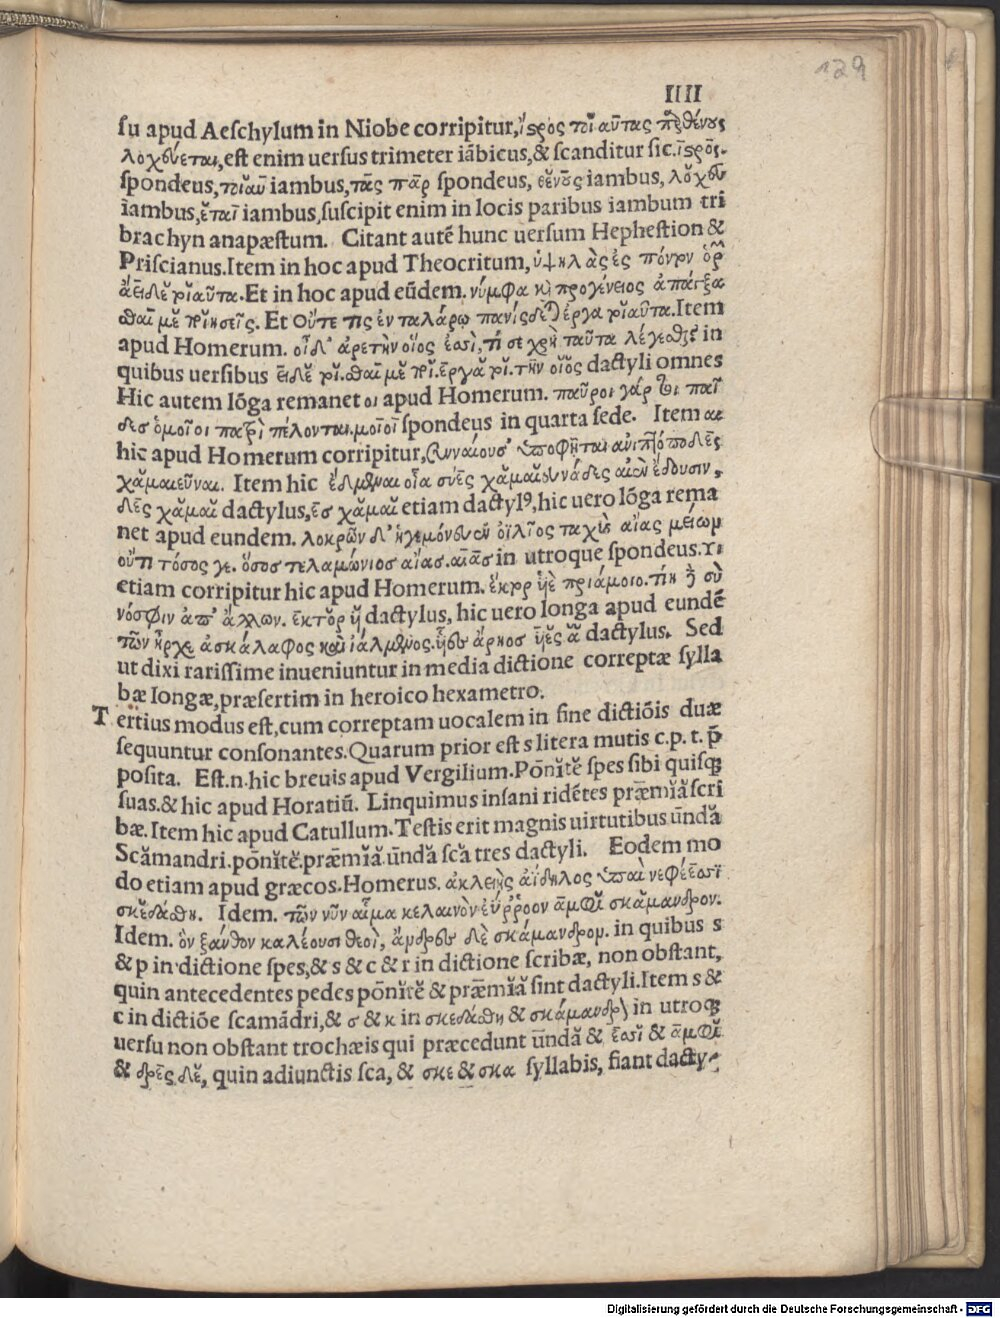 129
IIII
su apud Aeschylum in Niobe corripitur, ἱστρὸς τοιαύτας παρθένους
λοχεύεται, est enim uersus trimeter iābicus, & scanditur sic. ἱστρὸς.
spondeus, τοιαυ iambus, τὰς παρ spondeus, θένους iambus, λοχευ
iambus, εται iambus, suscipit enim in locis paribus iambum tri
brachyn anapæstum. Citant autē hunc uersum Hephestion &
Priscianus. Item in hoc apud Theocritum,
Et in hoc apud eūdem. νύμφα
Et οὔτε τις ἐν ταλάρῳ πανίσδεται ἔργα τοιαῦτα. Item
apud Homerum. οἶδ' ἀρετὴν οἷος ἐσσὶ, τί σε χρὴ ταῦτα λέγεσθαι in
quibus uersibus dactyli omnes
Hic autem lōga remanet οι apud Homerum. παῦροι γάρ τοι παῖ
δεσ ὁμοῖοι πατρὶ πέλονται. μοῖοῖ spondeus in quarta sede. Item αι
hic apud Homerum corripitur,
χαμαιεῦναι. Item hic
δὲς χαμαι dactylus, ἐσ χαμαι etiam dactylꝰ, hic uero lōga rema
net apud eundem. λοκρῶν δ' ἡγεμόνευεν ὀϊλῆος ταχὺς αἴας μείων
οὔτι τόσος γε. ὅσοσ τελαμώνιοσ αἴασ. αἴασ in utroque spondeus. υι
etiam corripitur hic apud Homerum. ἕκτορ υἱὲ πριάμοιο. τίη ἢ σὺ
νόσφιν ἀπ' ἄλλων. ἕκτορ υἱ dactylus, hic uero longa apud eundē
τῶν ἦρχε ἀσκάλαφος καὶ ἰάλμενος. υἷες ἄρηοσ υἷες α dactylus. Sed
ut dixi rarissime inueniuntur in media dictione correptæ sylla
bæ longæ, præsertim in heroico hexametro.
Tertius modus est, cum correptam uocalem in fine dictiōis duæ
sequuntur consonantes. Quarum prior est s litera mutis c. p. t. p̄
posita. Est. n. hic breuis apud Vergilium. Pōnĭtĕ spes sibi quisqꝫ
suas. & hic apud Horatiū. Linquimus insani ridētes præmĭă scri
bæ. Item hic apud Catullum. Testis erit magnis uirtutibus ūndă
Scămandri. pōnĭtĕ. præmĭă. ūndă scă tres dactyli. Eodem mo
do etiam apud græcos. Homerus. ἀκλεὴς ἀΐδηλος
σκεδάσθη. Idem. τῶν νῦν αἷμα κελαινὸν ἐΰρροον ἀμφὶ σκάμανδρον.
Idem. ὃν ξάνθον καλέουσι θεοὶ, ἄνδρες δὲ σκάμανδρον. in quibus s
& p in dictione spes, & s & c & r in dictione scribæ, non obstant,
quin antecedentes pedes pōnĭtĕ & præmĭă sint dactyli. Item s &
c in dictiōe scamādri, & σ & κ in σκεδάσθη & σκάμανδρ) in utroqꝫ
uersu non obstant trochæis qui præcedunt ūndă & ἐσσϊ & ἀμφὶ
& δρες δὲ, quin adiunctis sca, & σκε & σκα syllabis, fiant dacty-
Digitalisierung gefördert durch die Deutsche Forschungsgemeinschaft - DFG